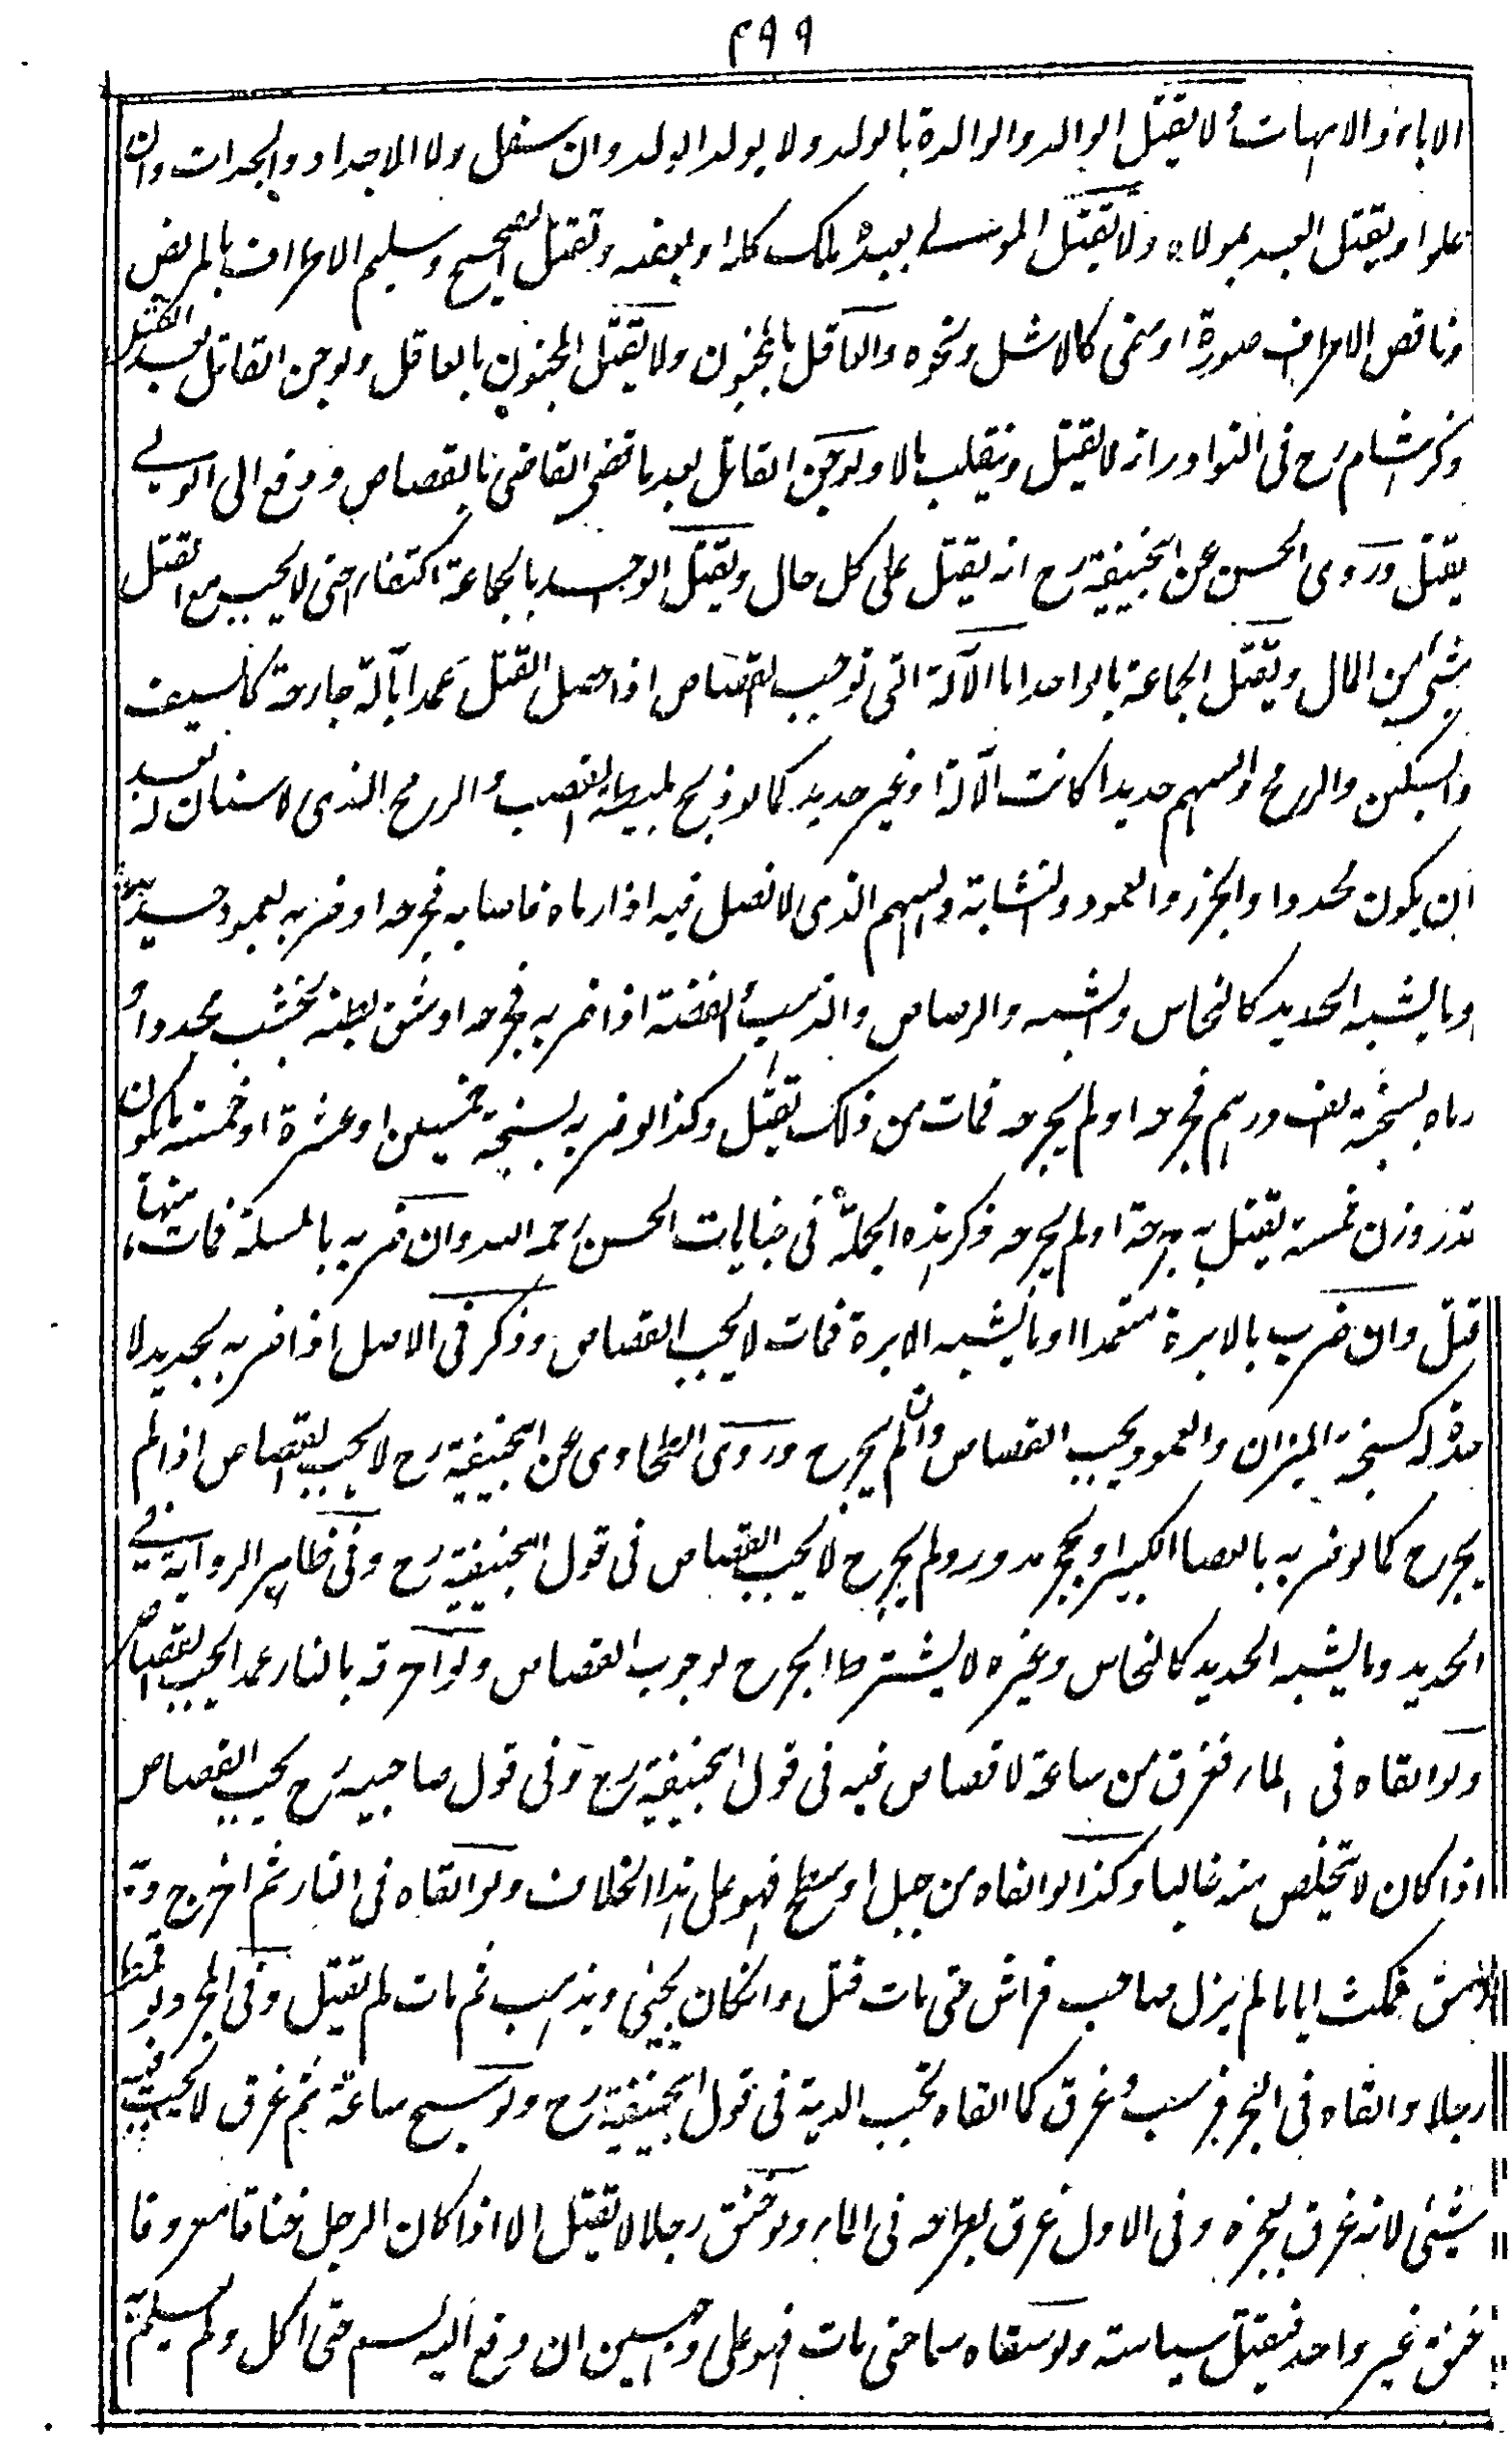 ۴۹۹
الاباء والامهات ولا يقتل الوالد والوالدة بالولد ولا بولد الولد وان سفل ولا الاجداد والجدات وان
علوا ويقتل العبد بمولاه ولا يقتل المولى بعبده ملك كله او بعضه ويقتل الصحيح وسليم الاطراف بالمريض
وناقص الاطراف صورة او معنى كالاشل ونحوه والعاقل بالمجنون ولا يقتل المجنون بالعاقل ولو جن القاتل بعد القتل
ذكر هشام رح فى النوادر انه لا يقتل وينقلب مالا ولو جن القاتل بعد ما قضى القاضى بالقصاص ودفع الى الولى
يقتل وروى الحسن عن ابيحنيفة رح انه يقتل على كل حال ويقتل الواحد بالجماعة اكتفاء حتى لا يجب مع القتل
شئ من المال ويقتل الجماعة بالواحد اما الآلة التى توجب القصاص اذا حصل القتل عمدا بآلة جارحة كالسيف
والسكين والرمح والسهم حديدا كانت الآلة او غير حديد كما لو ذبح بليطة القصب والرمح الذى لا سنان له بعد
ان يكون محددا والجزز والعمود والنشابة والسهم الذى لا نصل فيه اذا رماه فاصابه فجرحه او ضربه بعمود حديد
وما يشبه الحديد كالنحاس والشبه والرصاص والذهب والفضة اذا ضربه فجرحه او شق بطنه بخشب محدد او
رماه بسنجة الف درهم فجرحه او لم يجرحه فمات من ذلك يقتل وكذا لو ضربه بسنجة خمسين او عشرة او خمسة يكون
قدر وزن خمسة يقتل به جرحه او لم يجرحه ذكر هذه الجملة فى جنايات الحسن رحمه الله وان ضربه بالمسلة فمات منها
قتل وان ضرب بالابرة متعمدا او ما يشبه الابرة فمات لا يجب القصاص وذكر فى الاصل اذا ضربه بحديد لا
حدة له كسنجة الميزان والعمود يجب القصاص وان لم يجرح وروى الطحاوى عن ابيحنيفة رح لا يجب القصاص اذا لم
يجرح كما لو ضربه بالعصا الكبير او بحجر مدور ولم يجرح لا يجب القصاص فى قول ابيحنيفة رح وفى ظاهر الرواية فى
الحديد وما يشبه الحديد كالنحاس وغيره لا يشترط الجرح لوجوب القصاص ولو احرقه بالنار عمدا يجب القصاص
ولو القاه فى الماء فغرق من ساعة لا قصاص فيه فى قول ابيحنيفة رح وفى قول صاحبيه رح يجب القصاص
اذا كان لا يتخلص منه غالبا وكذا لو القاه من جبل او سطح فهو على هذا الخلاف ولو القاه فى النار ثم اخرج وبه
رمق فمكث اياما لم يزل صاحب فراش حتى مات قتل وان كان يجئ ويذهب ثم مات لم يقتل وفى المجرد لو قمط
رجلا والقاه فى البحر فرسب وغرق كما القاه تجب الدية فى قول ابيحنيفة رح ولو سبح ساعة ثم غرق لا يجب فيه
شئ لانه غرق بعجزه وفى الاول غرق بطرحه فى الماء ولو خنق رجلا لا يقتل الا اذا كان الرجل خناقا معروفا
خنق غير واحد فيقتل سياسة ولو سقاه سما حتى مات فهو على وجهين ان دفع اليه السم حتى اكل ولم يعلم به